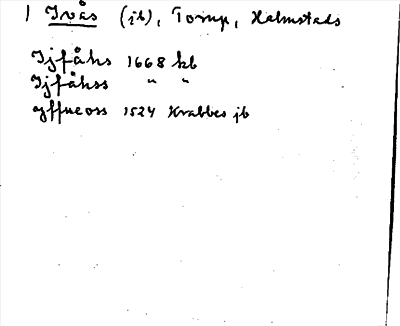 1 Ivås (ib), Torup, Halmstads
Ijfåhs 1668 kb
Ijfåhss " "
yffueoss 1524 Krabbes jb